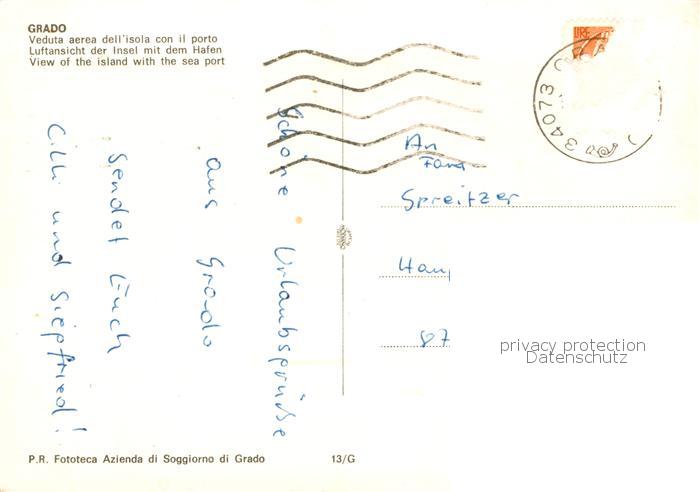 GRADO
Veduta aerea dell'isola con il porto
Luftansicht der Insel mit dem Hafen
View of the island with the sea port
LIRE
34073
Schöne Urlaubsgrüße
aus Grado
sendet Euch
Cilli und Siegfried!
An
Fam
Spreitzer
87
privacy protection
Datenschutz
P.R. Fototeca Azienda di Soggiorno di Grado
13/G